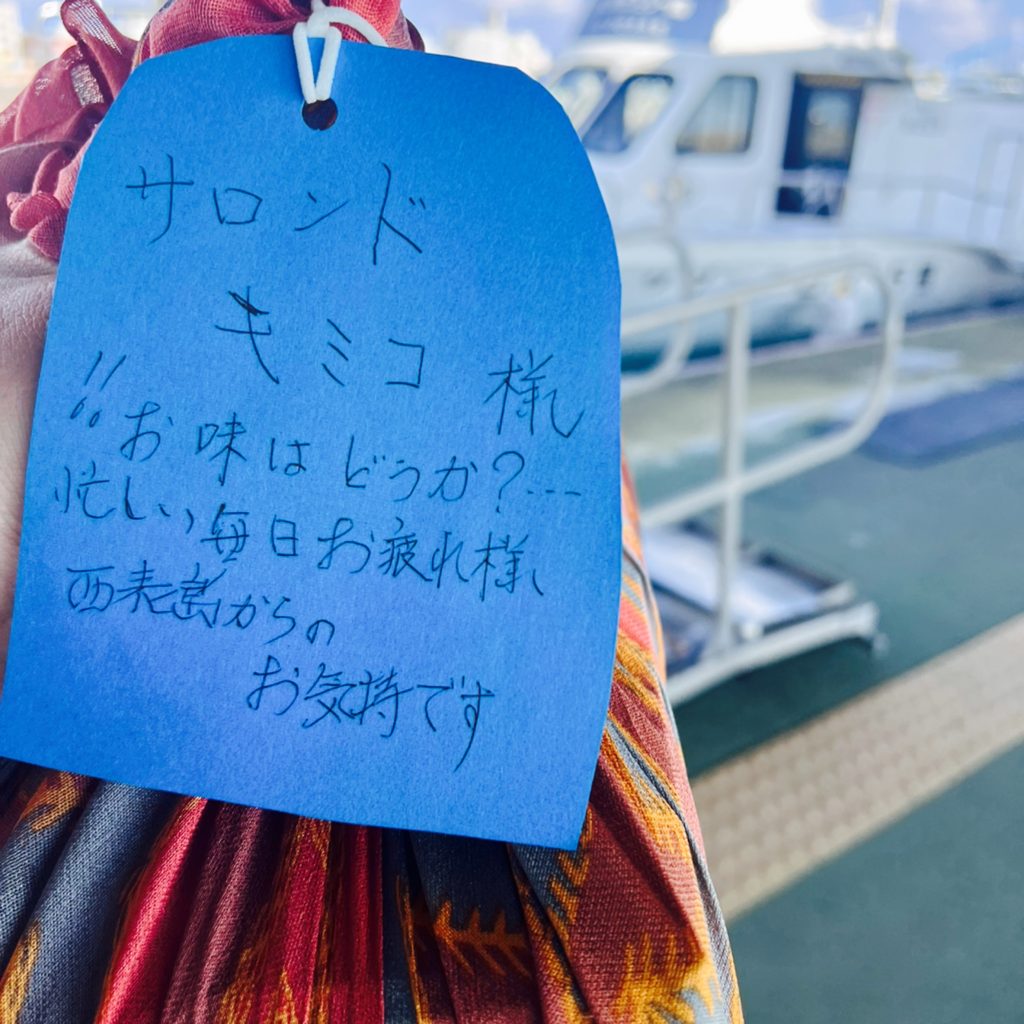 サロンド
キミコ 様
"お味はどうか?---
忙しい毎日お疲れ様
西表島からの
お気持です